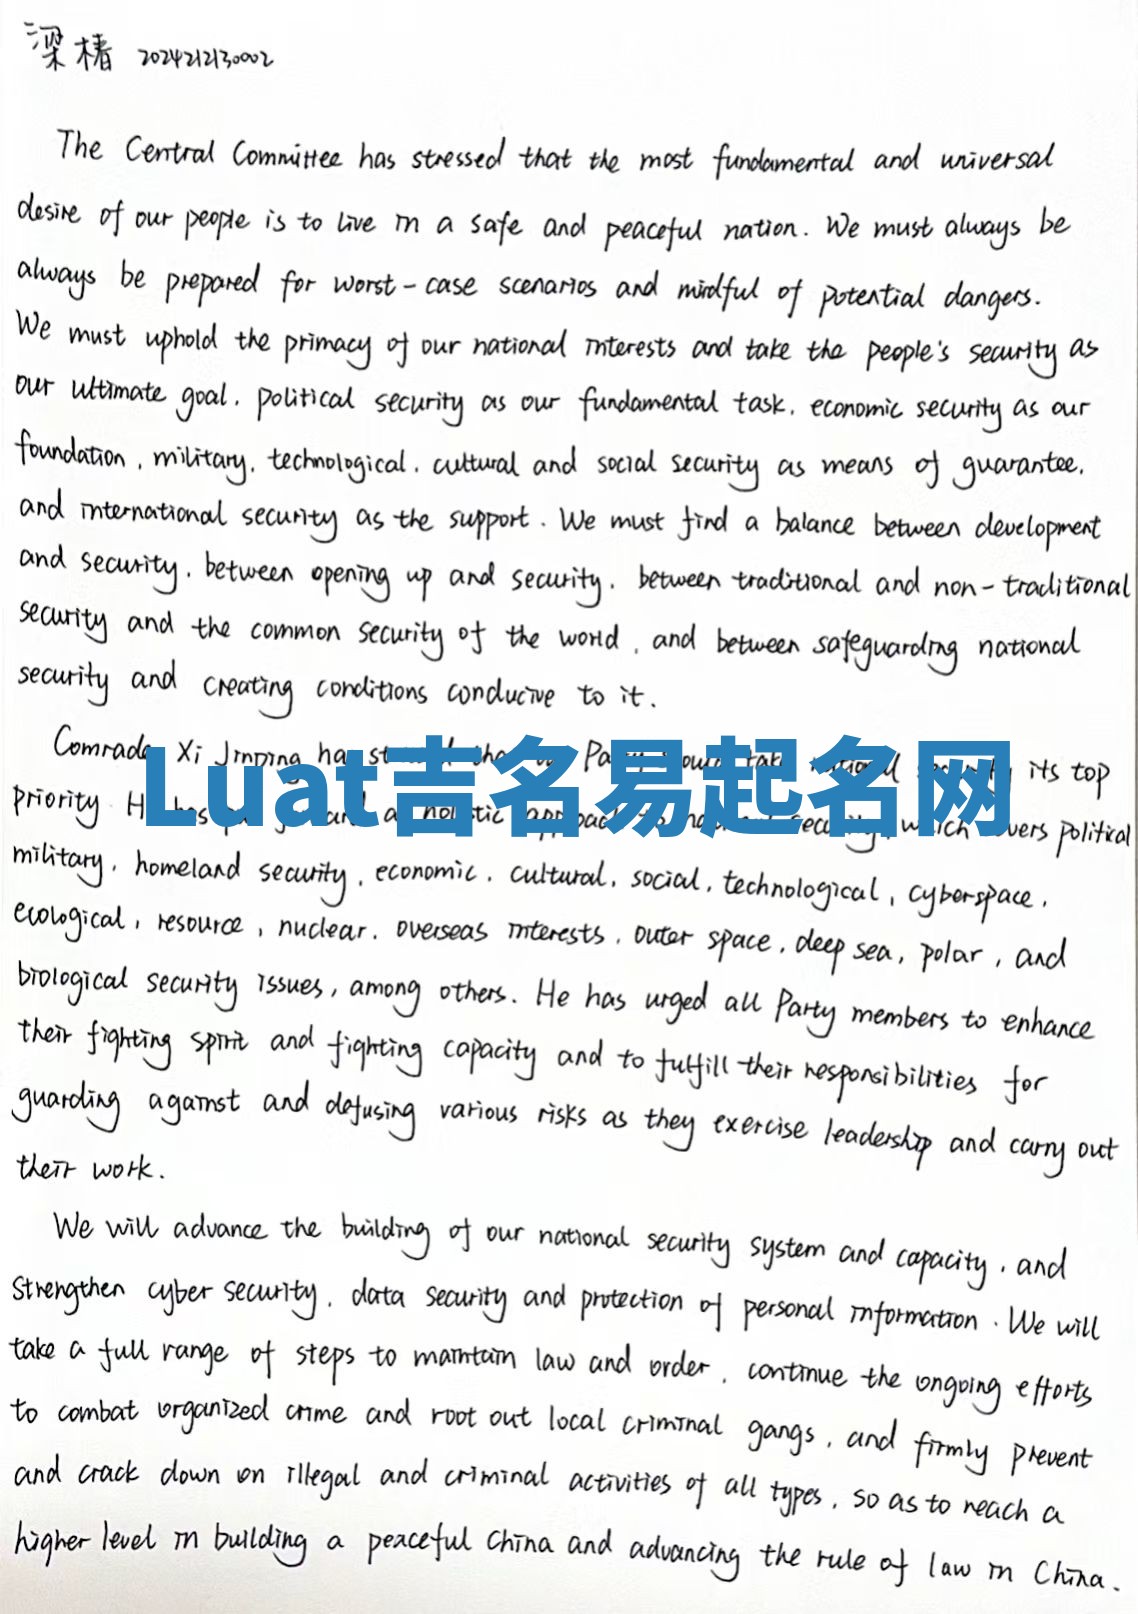 梁椿 2024212130002
The Central Committee has stressed that the most fundamental and universal
desire of our people is to live in a safe and peaceful nation. We must always be
always be prepared for worst-case scenarios and mindful of potential dangers.
We must uphold the primacy of our national interests and take the people's security as
our ultimate goal, political security as our fundamental task, economic security as our
foundation, military, technological, cultural and social security as means of guarantee,
and international security as the support. We must find a balance between development
and security, between opening up and security, between traditional and non-traditional
security and the common security of the world, and between safeguarding national
security and creating conditions conducive to it.
Comrade Xi Jinping has its top
Luat吉名易起名网
priority political
military, homeland security, economic, cultural, social, technological, cyberspace,
ecological, resource, nuclear, overseas interests, outer space, deep sea, polar, and
biological security issues, among others. He has urged all Party members to enhance
their fighting spirit and fighting capacity and to fulfill their responsibilities for
guarding against and defusing various risks as they exercise leadership and carry out
their work.
We will advance the building of our national security system and capacity, and
strengthen cyber security, data security and protection of personal information. We will
take a full range of steps to maintain law and order, continue the ongoing efforts
to combat organized crime and root out local criminal gangs, and firmly prevent
and crack down on illegal and criminal activities of all types, so as to reach a
higher level in building a peaceful China and advancing the rule of law in China.